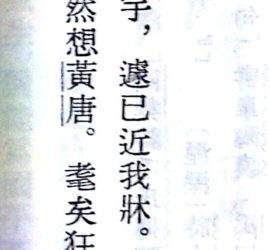 宇,遽已近我牀。
然想黃唐。耄矣狂